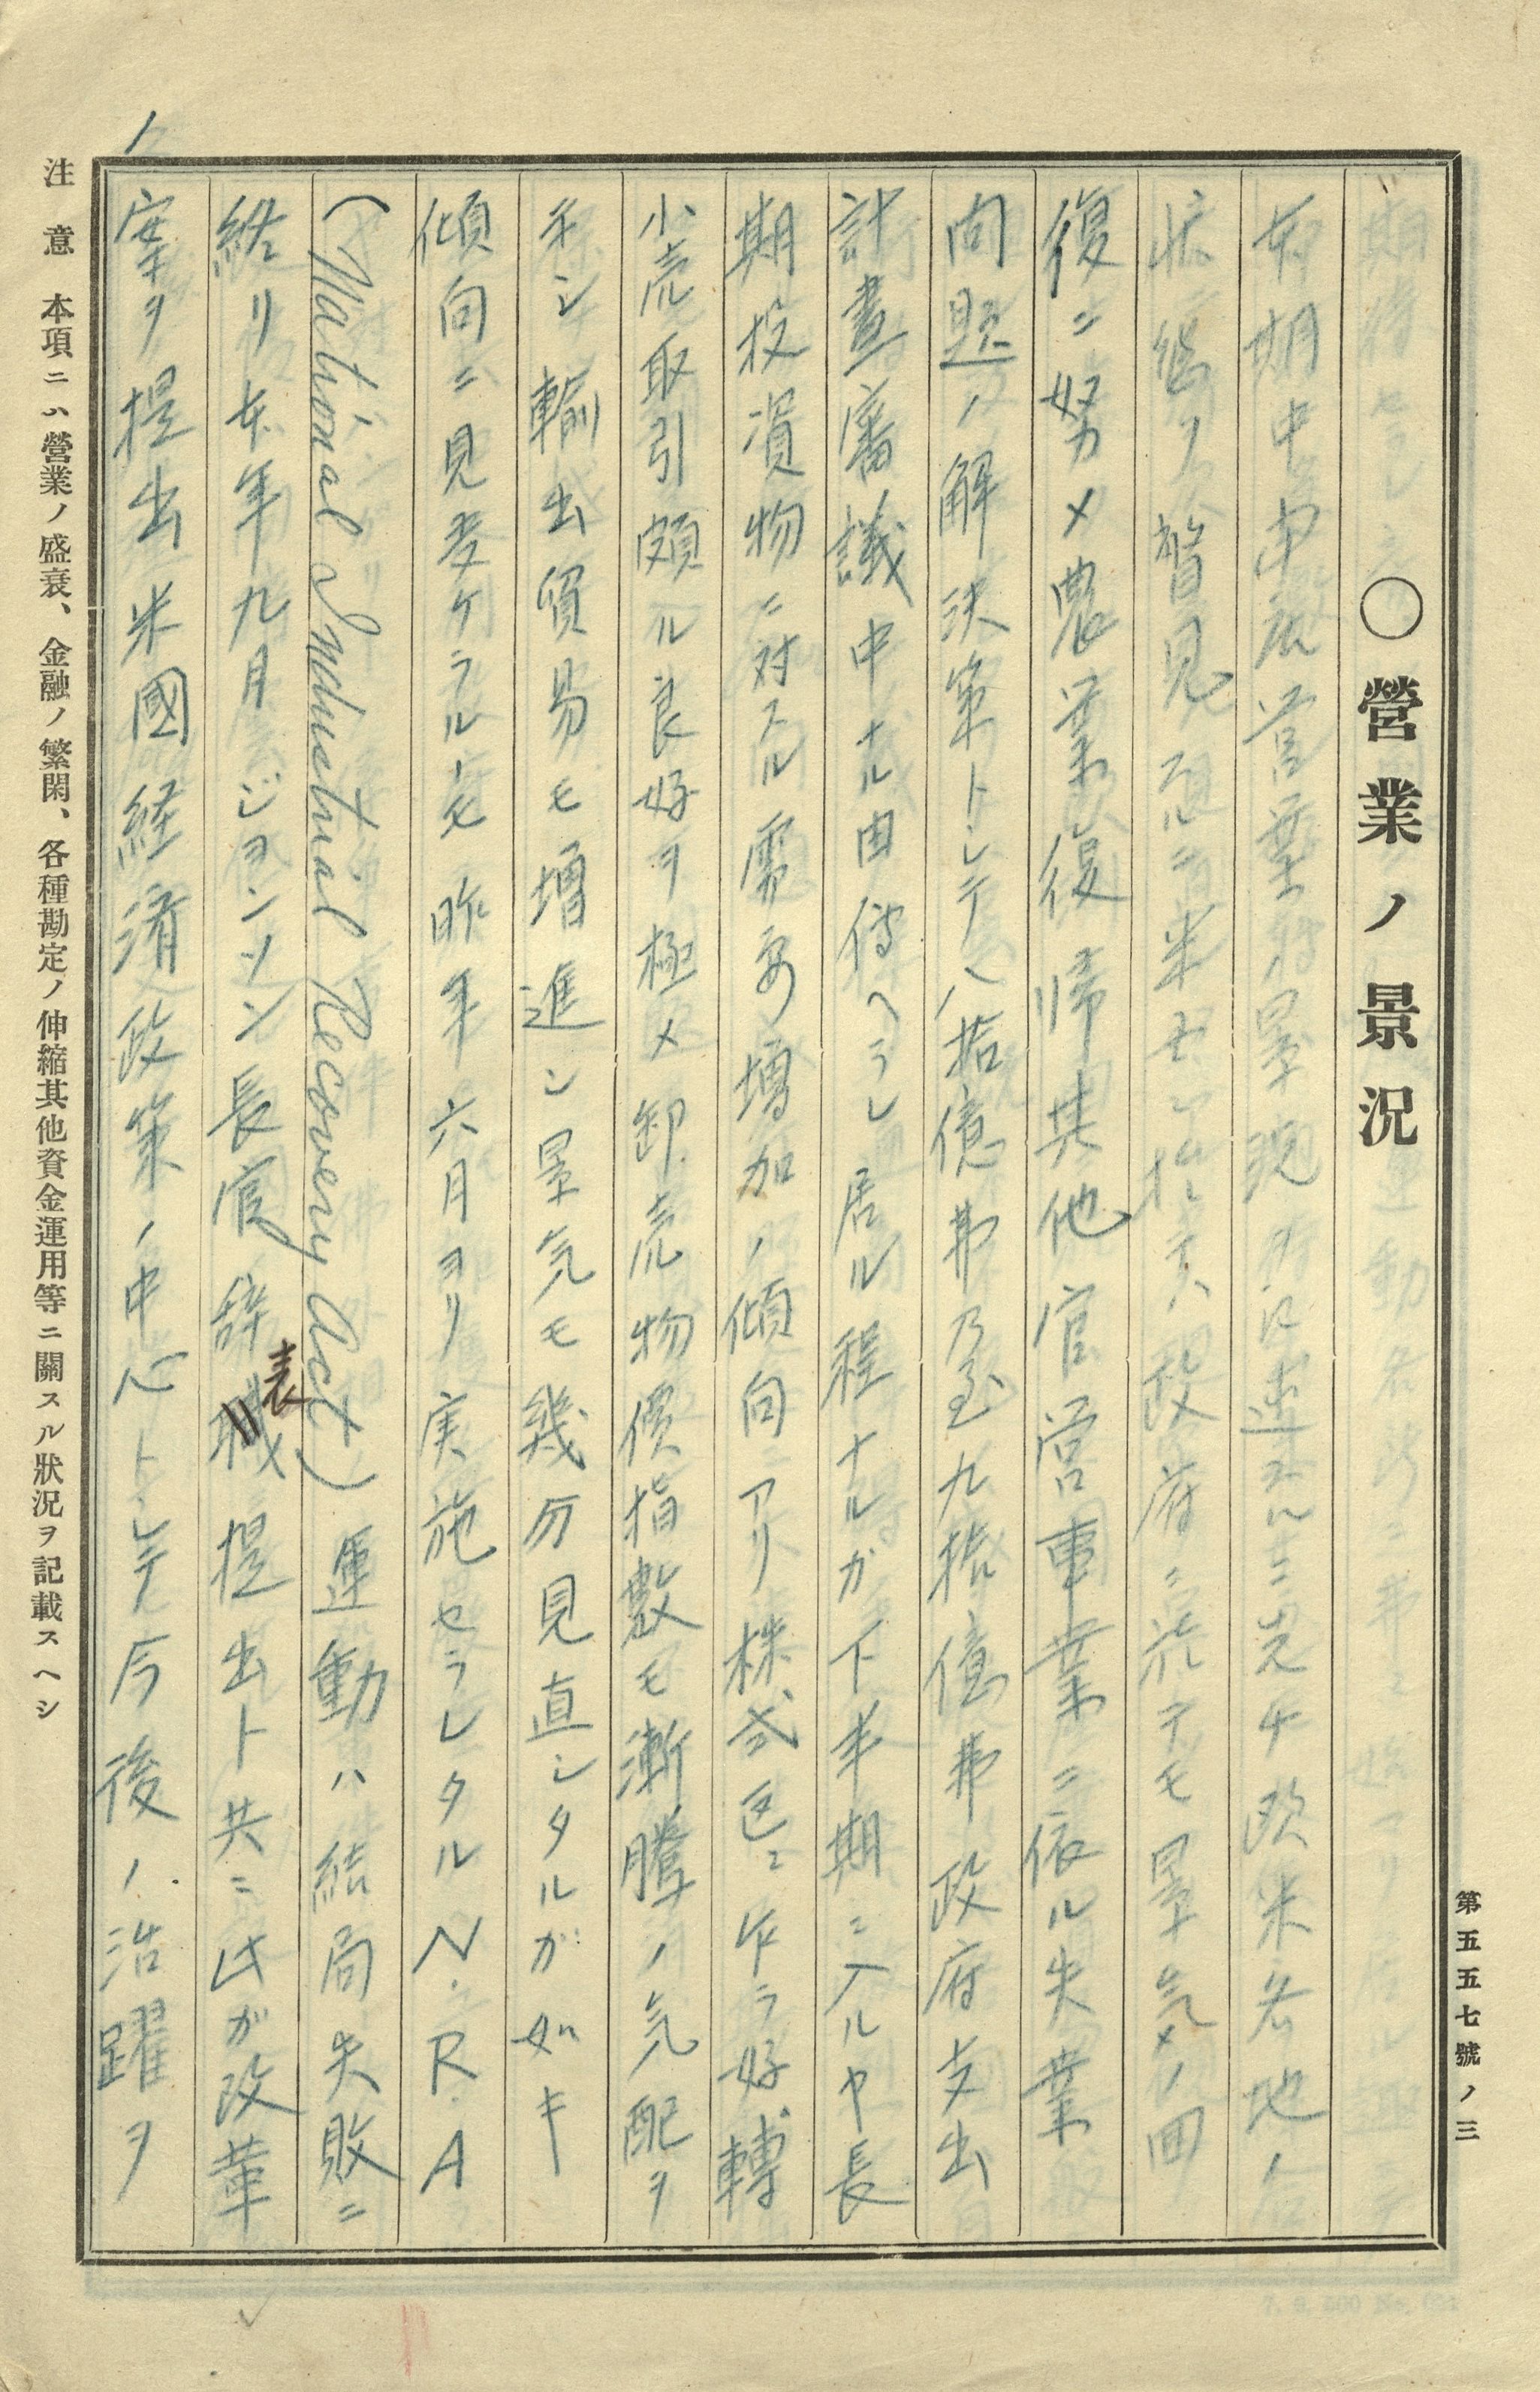 第五五七號ノ三
〇營業ノ景況
本期中当店営業ノ景況ヲ記述スルニ先チ欧米各地ノ
状態ヲ瞥見スルニ米 政府ニ於テモ景気ノ回
復ニ努メ農業復帰其他官営事業ニ依ル失業
問題ノ解決策トシテハ八拾億弗乃至九拾億弗政府支出
計畫審議中ナル由傳ヘラレ居ル程ナルガ下半期ニ入ルヤ長
期投資物ニ対スル需要増加ノ傾向ニアリ株式色ニ乍ラ好轉
小売取引頗ル良好ヲ極メ卸売物價指數モ漸騰ノ気配ヲ
示シ輸出貿易モ増進シ景気モ幾分見直シタルガ如キ
傾向ニ見受ケラルヽモ昨年六月ヨリ実施セラレタルN.R.A
(National Industrial Recovery Act)運動ハ結局失敗ニ
終リ本年九月ジョンソン長官辞表提出ト共ニ此ガ改革
案ヲ提出米國経済政策ノ中心トシテ今後ノ活躍ヲ
注意 本項ニハ營業ノ盛衰、金融ノ繁閑、各種勘定ノ伸縮其他資金運用等ニ關スル狀況ヲ記載スヘシ